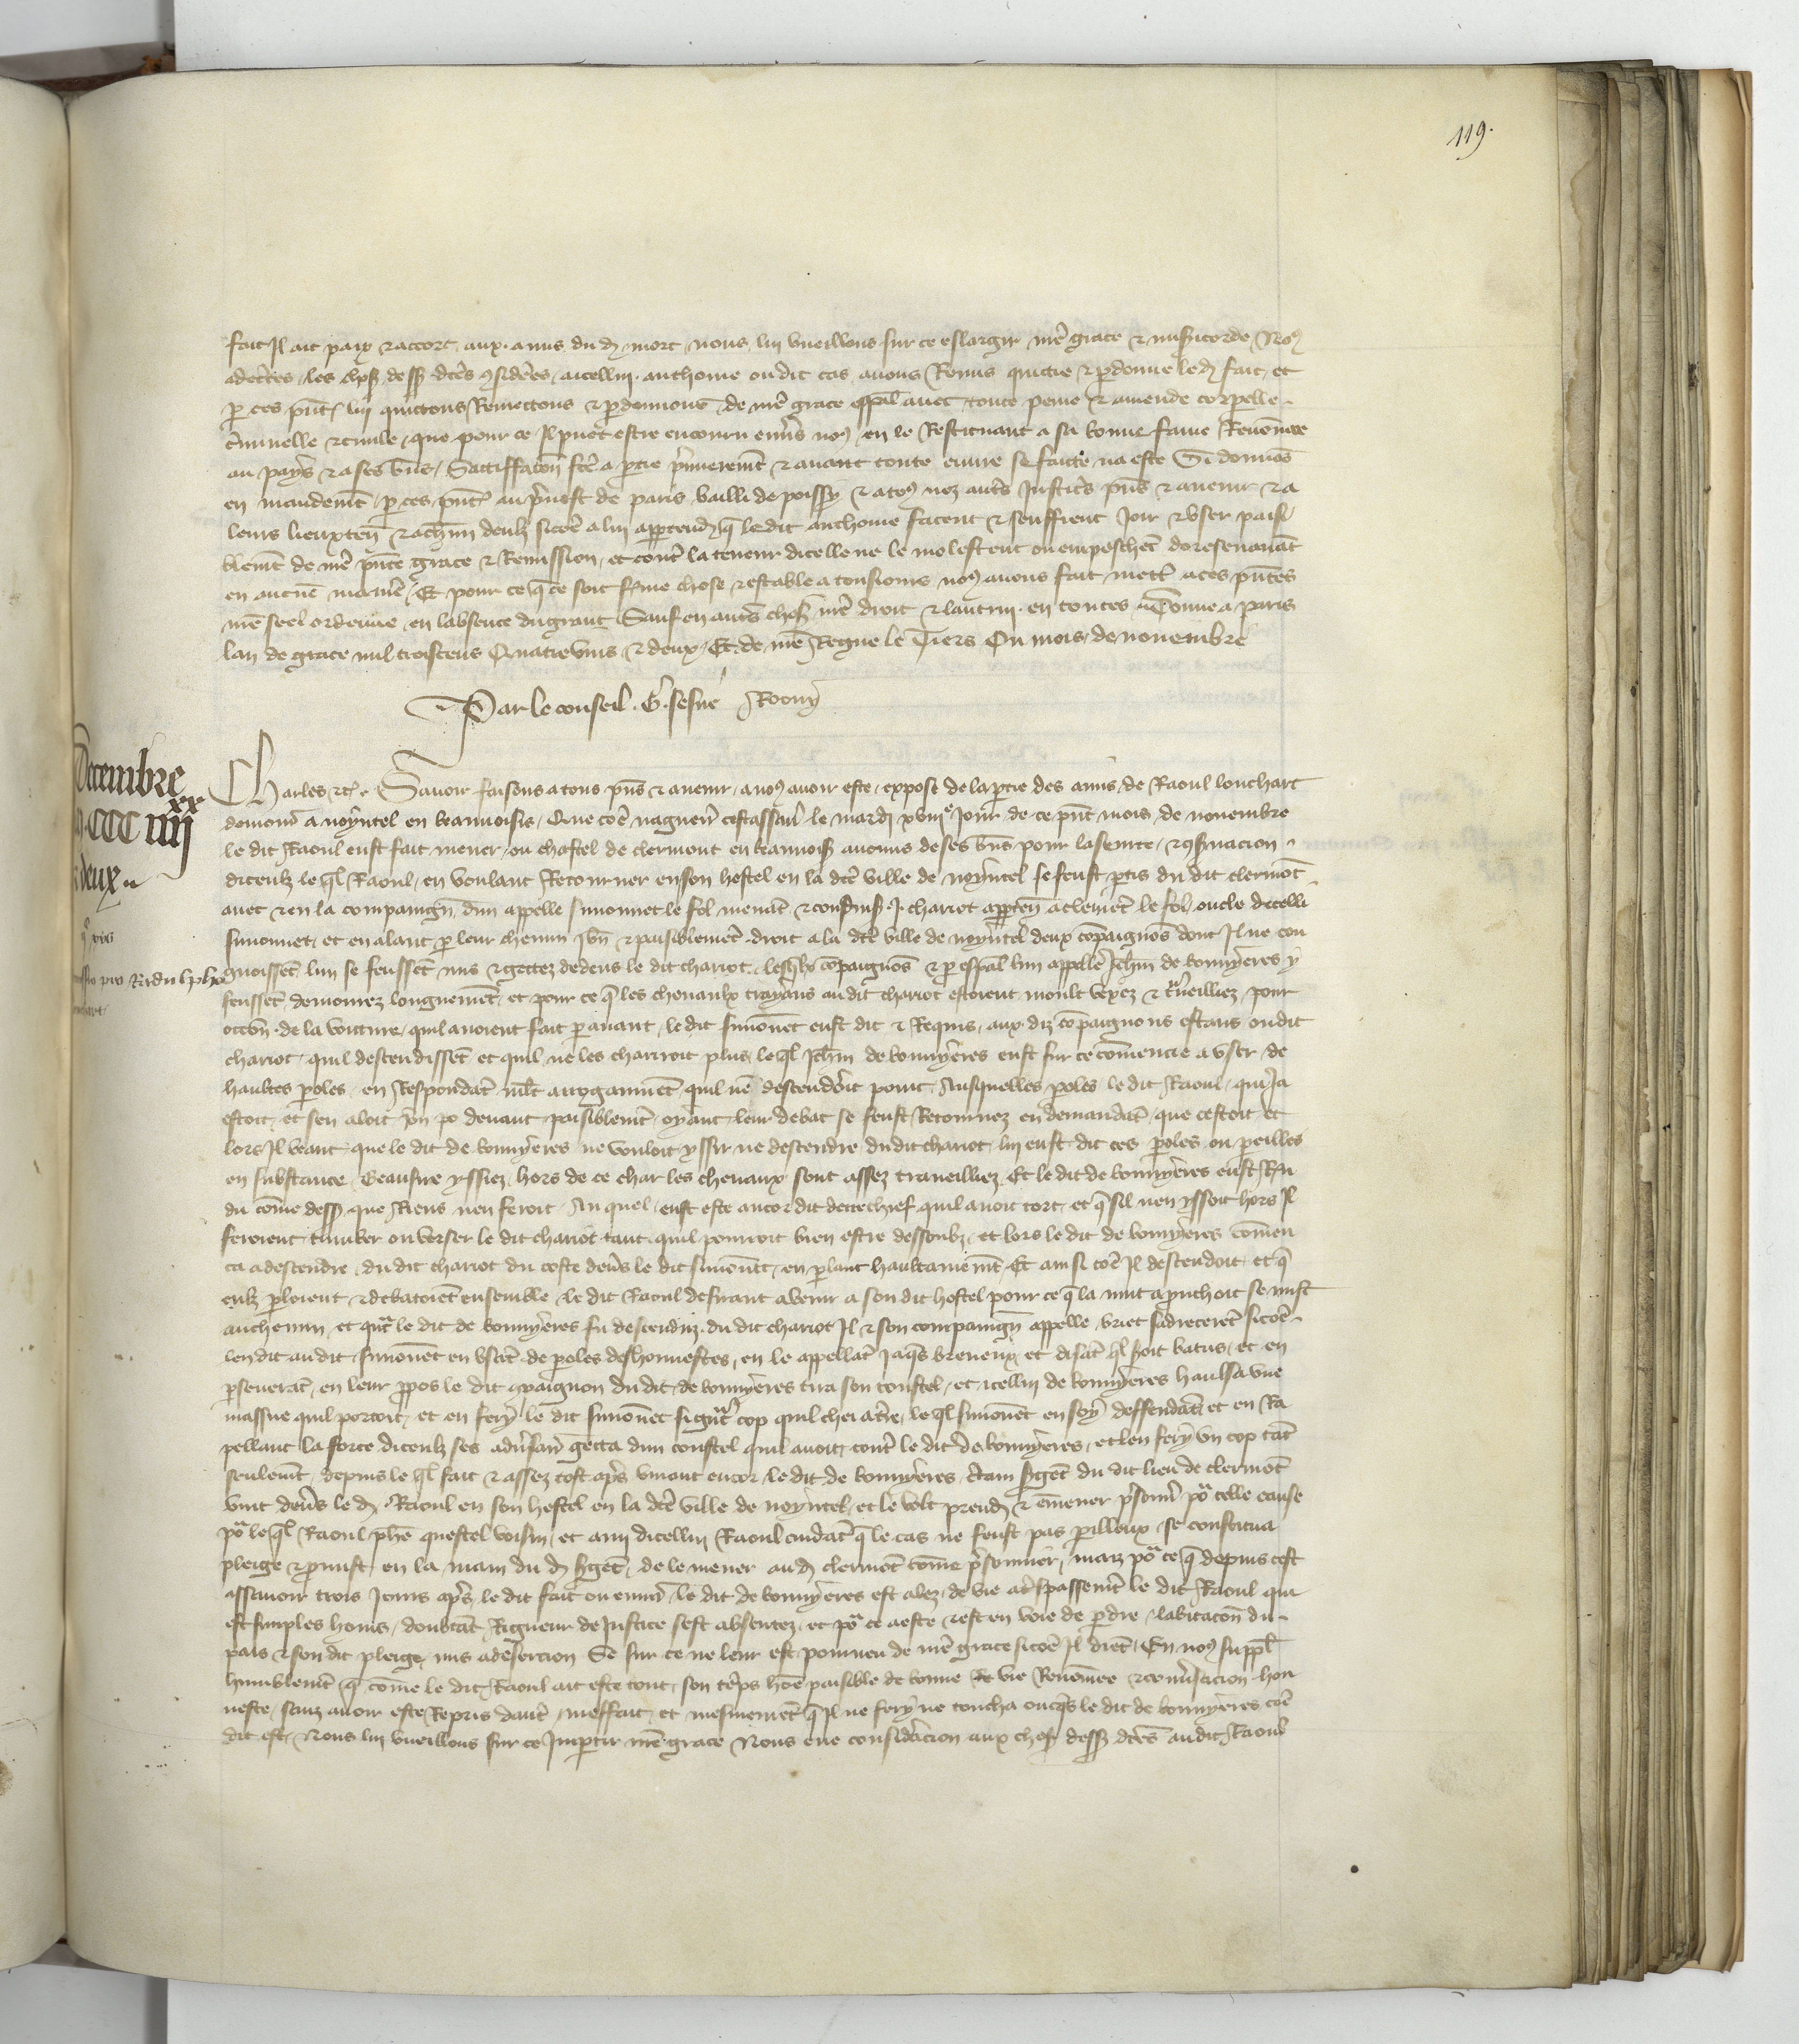 119.
fait Il ait paix et accort aux amis du d mort nous lui vueillons sur ce eslargir nre grace et misicorde Nos
adcertes les choses dess dctes considerees aicellui anthoine ou dit cas auons Remis quictie et pdonne le d fait et
p ces pntes lui quictons Remettons et pdonnons de nre grace espal auec toute peine et amende corpelle
criminelle et ciuile que pour ce Il puet estre encouru enuers nos en le Restituant a sa bonne fame Renomee
au pays et a ses biens Satisffacon fce a ptie premierement et auant toute euure se faicte na este Si donnons
en mandemt p ces pntes au preuost de paris bailli de poissy et a tos noz autres Justiciers pns et auenir et a
leurs lieuxten et a chun deulz si come a lui apptendra que le dit anthoine facent et seuffrent Joir et vser paisi
blemt de nre pnte grace et Remission et contre la teneur dicelle ne le molestent ou empeschent doresenauat
en aucune maniere Et pour ce que ce soit ferme chose et estable a tousiours nos auons fait mettre a ces pntes
nre seel ordenne en labsence du grant Sauf en autres choses nre droit et lautrui en toutes Donne a paris
lan de grace mil troiscens Quatrevins et deux Et de nre Regne le Tiers Ou mois de nouembre
Par le conseil . G . sesne Rony
Decembre
CCC iiii xx
deux
Remissio pro Radulpho
louchart
Charles etc Sauoir faisons a tous pns et auenir a nos auoir este expose de la ptie des amis de Raoul louchart
demour a noyntel en beauuoisis Que coe naguers cestassauoir le mardi xviiie Jour de ce pnt mois de nouembre
le dit Raoul eust fait mener ou chastel de clermont en beauuoisis aucuns de ses biens pour la seurte et conseruacion
diceulz le ql Raoul en voulant Retourner en son hostel en la dce ville de noyntel se feust ptis du dit clermot
auec et en la compaign dun appelle simonnet le fol menat et conduis I chariot appten a clement le fol oncle dicelli
simonnet et en alant p leur chemin bn et paisiblement droit a la dce ville de noyntel deux compaignos dont Il ne con
gnoissent lun se feussent mis et gettez dedens le dit chariot lesqlx compaignos et p espal lun appelle Jehan de bonnyeres y
feussent demourez longuement et pour ce que les cheuaulx trayans au dit chariot estoient moult vexez et traueilliez pour
occon de la voitture quil auoient fait p auant le dit simonnet eust dit et Requis aux diz compaignons estans ou dit
chariot quil descendissent et quil ne les charrroit plus le ql Jehan de bonnyeres eust sur ce commencie a vser de
haultes poles en Respondat mlt arrogamment quil ne descendroit point Ausquelles poles le dit Raoul qui Ja
estoit et sen aloit vn po deuant paisiblemt oyant leur debat se feust Retournez en demandat que cestoit et
lors Il veant que le dit de bonnyeres ne vouloit yssir ne descendre du dit chariot lui eust dit ces poles ou peilles
en substance Beausire yssiez hors de ce char les cheuaux sont assez traueilliez Et le dit de bonnyeres eust Rn
du come dess que Riens nen feroit Au quel eust este ancor dit de rechief quil auoit tort et que sil nen yssoit hors Il
feroient tumber ou verser le dit chariot tant quil pourroit bien estre dessoubz et lors le dit de bonnyeres commen
ca a descendre du dit chariot du coste deuers le dit simonnet en plant haultainemt Et ainsi coe Il descendoit et que
eulz ploient et debatoient ensemble le dit Raoul desirant a venir a son dit hostel pour ce que la nuit aprouchoit se mist
au chemin et quat le dit de bonnyeres fu descenduz du dit chariot Il et son compaign appelle vriet sadrecerent si coe
len dit au dit simonnet en vsat de poles deshonnestes en le appellat Jaqs breneux et disat ql seroit batus et en
pseuerat en leur ppos le dit compaignon du dit de bonnyeres tira son coustel et icellui de bonnyeres haulsa vne
massue quil portoit et en fery le dit simonnet si grat cop quil chei a tre le ql simonnet en soy deffendat et en Ra
pellant la force diceulz ses aduersaires getta dun coustel quil auoit contre le dit de bonnyeres et len fery vn cop tat
seulemt depuis le ql fait et assez tost apres viuant encor le dit de bonnyeres sergent du dit lieu de clermot
vint deuers le d Raoul en son hostel en la dce ville de noyntel et le volt prendre et emener prisonnier por celle cause
por le ql Raoul phe questel voisin et ami dicellui Raoul cuidat que le cas ne feust pas perilleux se constitua
pleige et pmist en la main du d sergent de le mener au d clermot come prisonnier maiz por ce que depuis cest
assauoir trois Jours apres le dit fait ou enuiron le dit de bonnyeres est alez de vie a trespassemt le dit Raoul qui
est simples homs doubtat Rigueur de Justice sest absentez et por ce a este et est en voie de pdre labitacon du
pais et son dit pleige mis a desercion Se sur ce ne leur est pourueu de nre grace si coe Il dient En nos suppl
humblemt que comme le dit Raoul ait este tout son temps hoe paisible de bonne vie Renomee et conuersacion hon
neste sanz auoir este Repris dautre meffait et mesmemt que Il ne fery ne toucha oncqs le dit de bonnyeres coe
dit est Nous lui vueillons sur ce Impertir nre grace Nous eue consideracion aux choses dess dces au dit Raoul